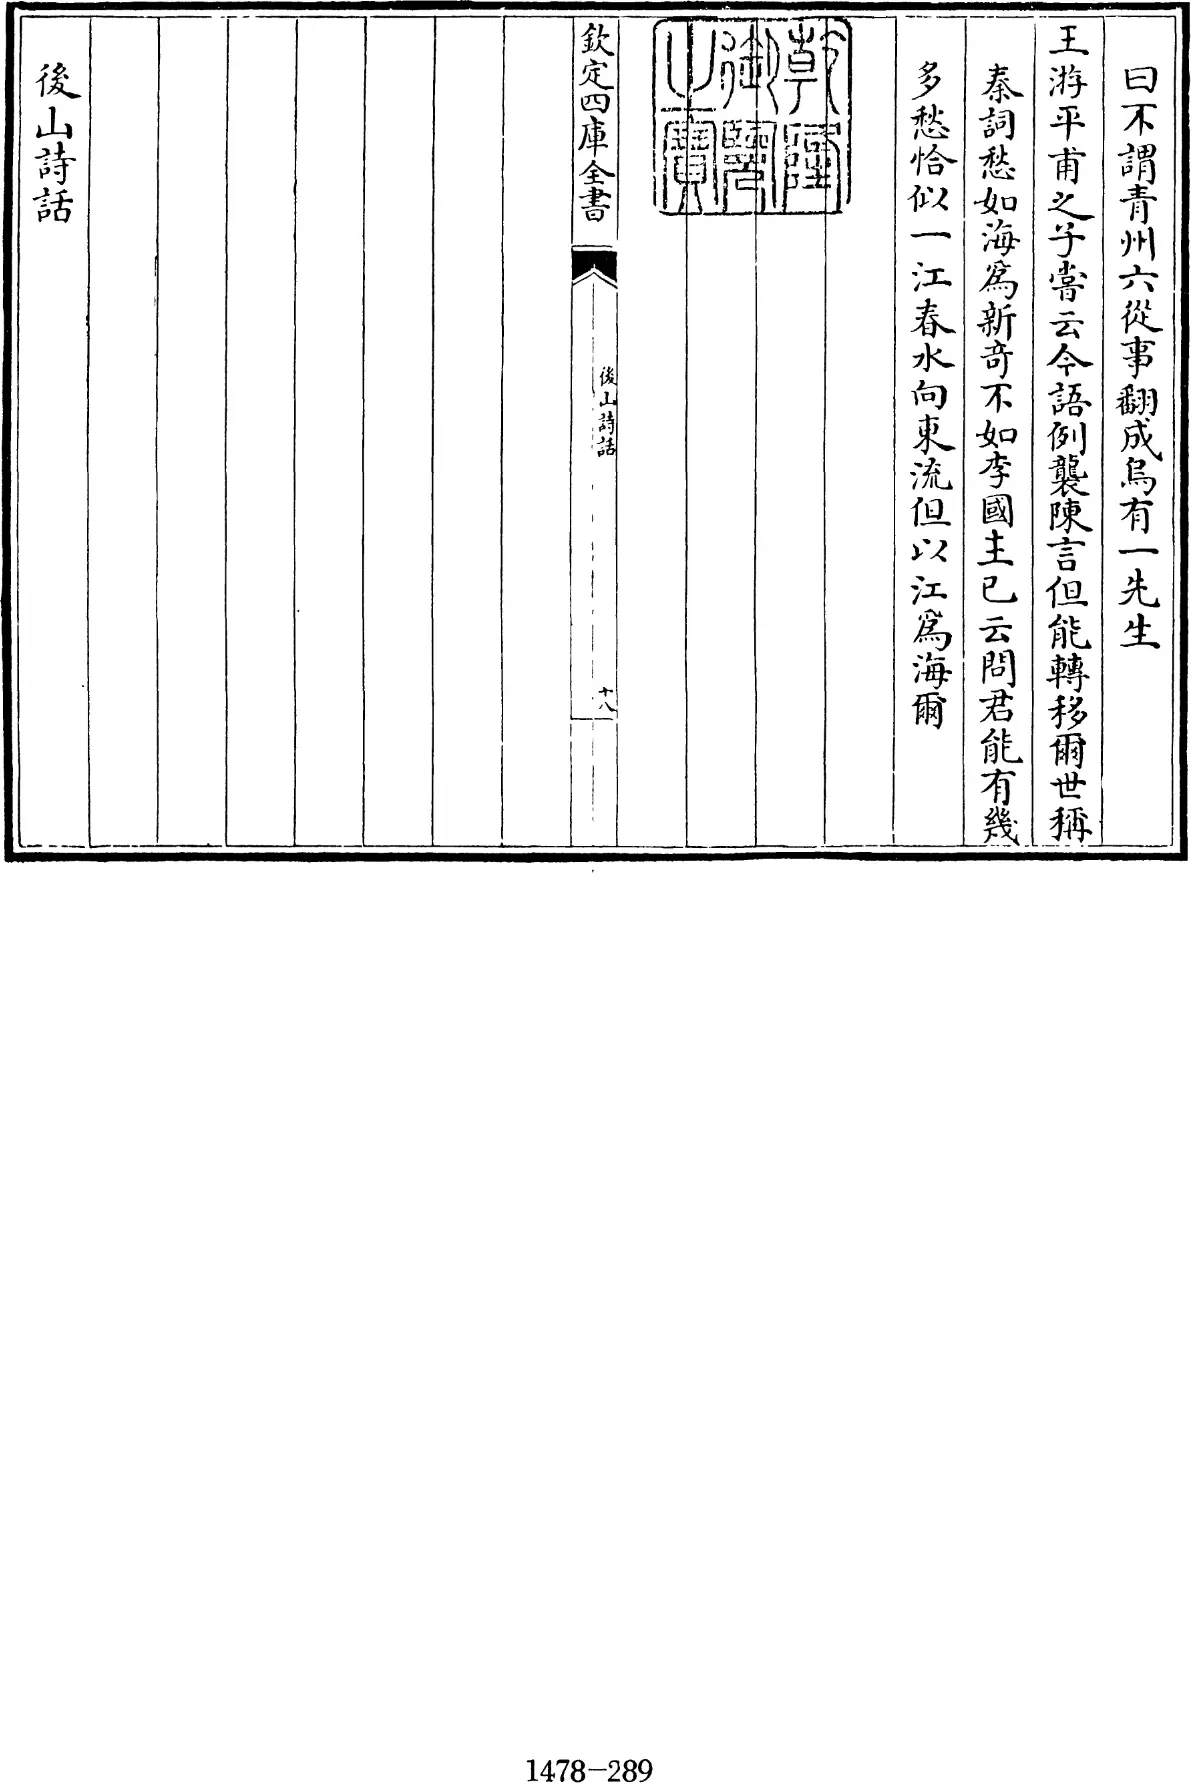 曰不謂青州六從事翻成烏有一先生
王游平甫之子嘗云今語例襲陳言但能轉移爾世稱
秦詞愁如海爲新奇不如李國主已云問君能有幾
多愁恰似一江春水向東流但以江爲海爾
乾隆
御覽
之寶
欽定四庫全書
後山詩話
十八
後山詩話
1478-289